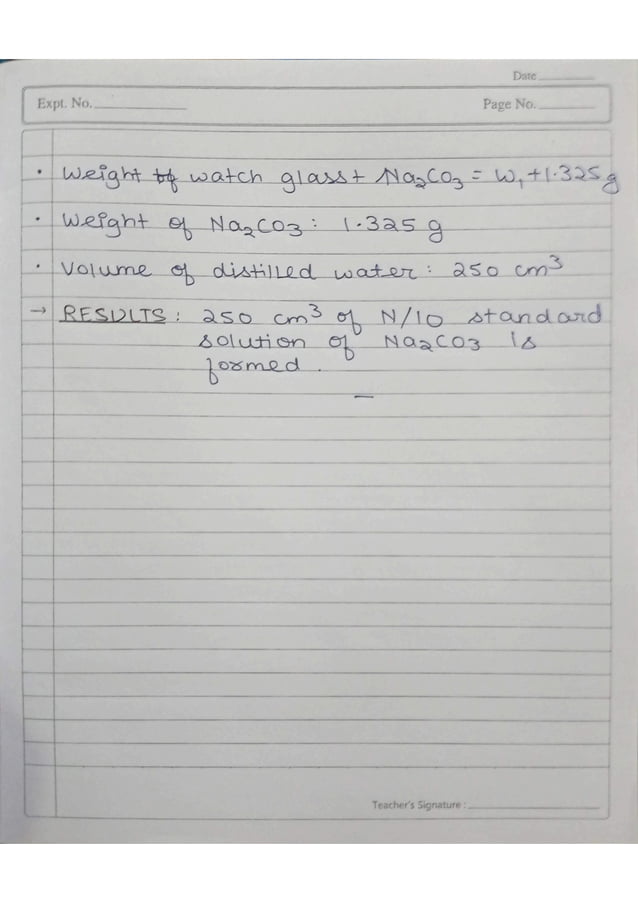 Date
Expt. No.
Page No.
• Weight of watch glass + Na2CO3 = W1+1.325g
• Weight of Na2CO3 : 1.325 g
• Volume of distilled water : 250 cm3
→ RESULTS : 250 cm3 of N/10 standard
solution of Na2CO3 is
formed.
Teacher's Signature :